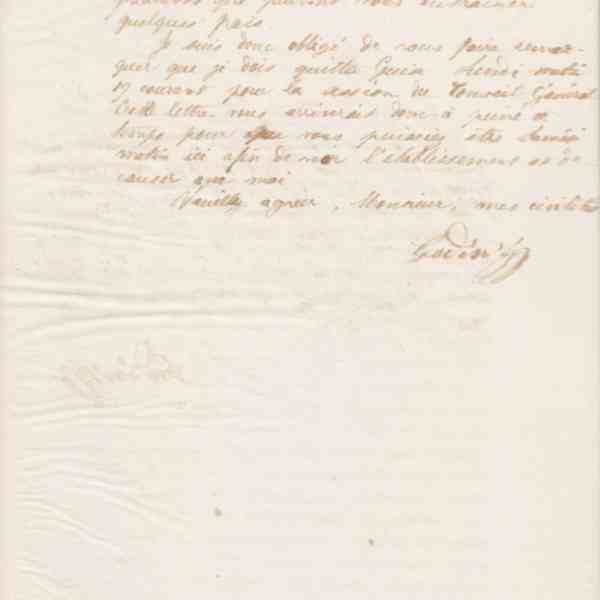 quelques frais.
Je suis donc obligé de vous faire remar-
quer que je dois quitter Guise lundi matin
courant pour la session du Conseil Général
Cette lettre vous arriverait donc à peine à
temps pour que vous puissiez être samedi
matin ici afin de voir l'établissement et de
causer avec moi
Veuillez agréer, Monsieur, mes civilités
Godin